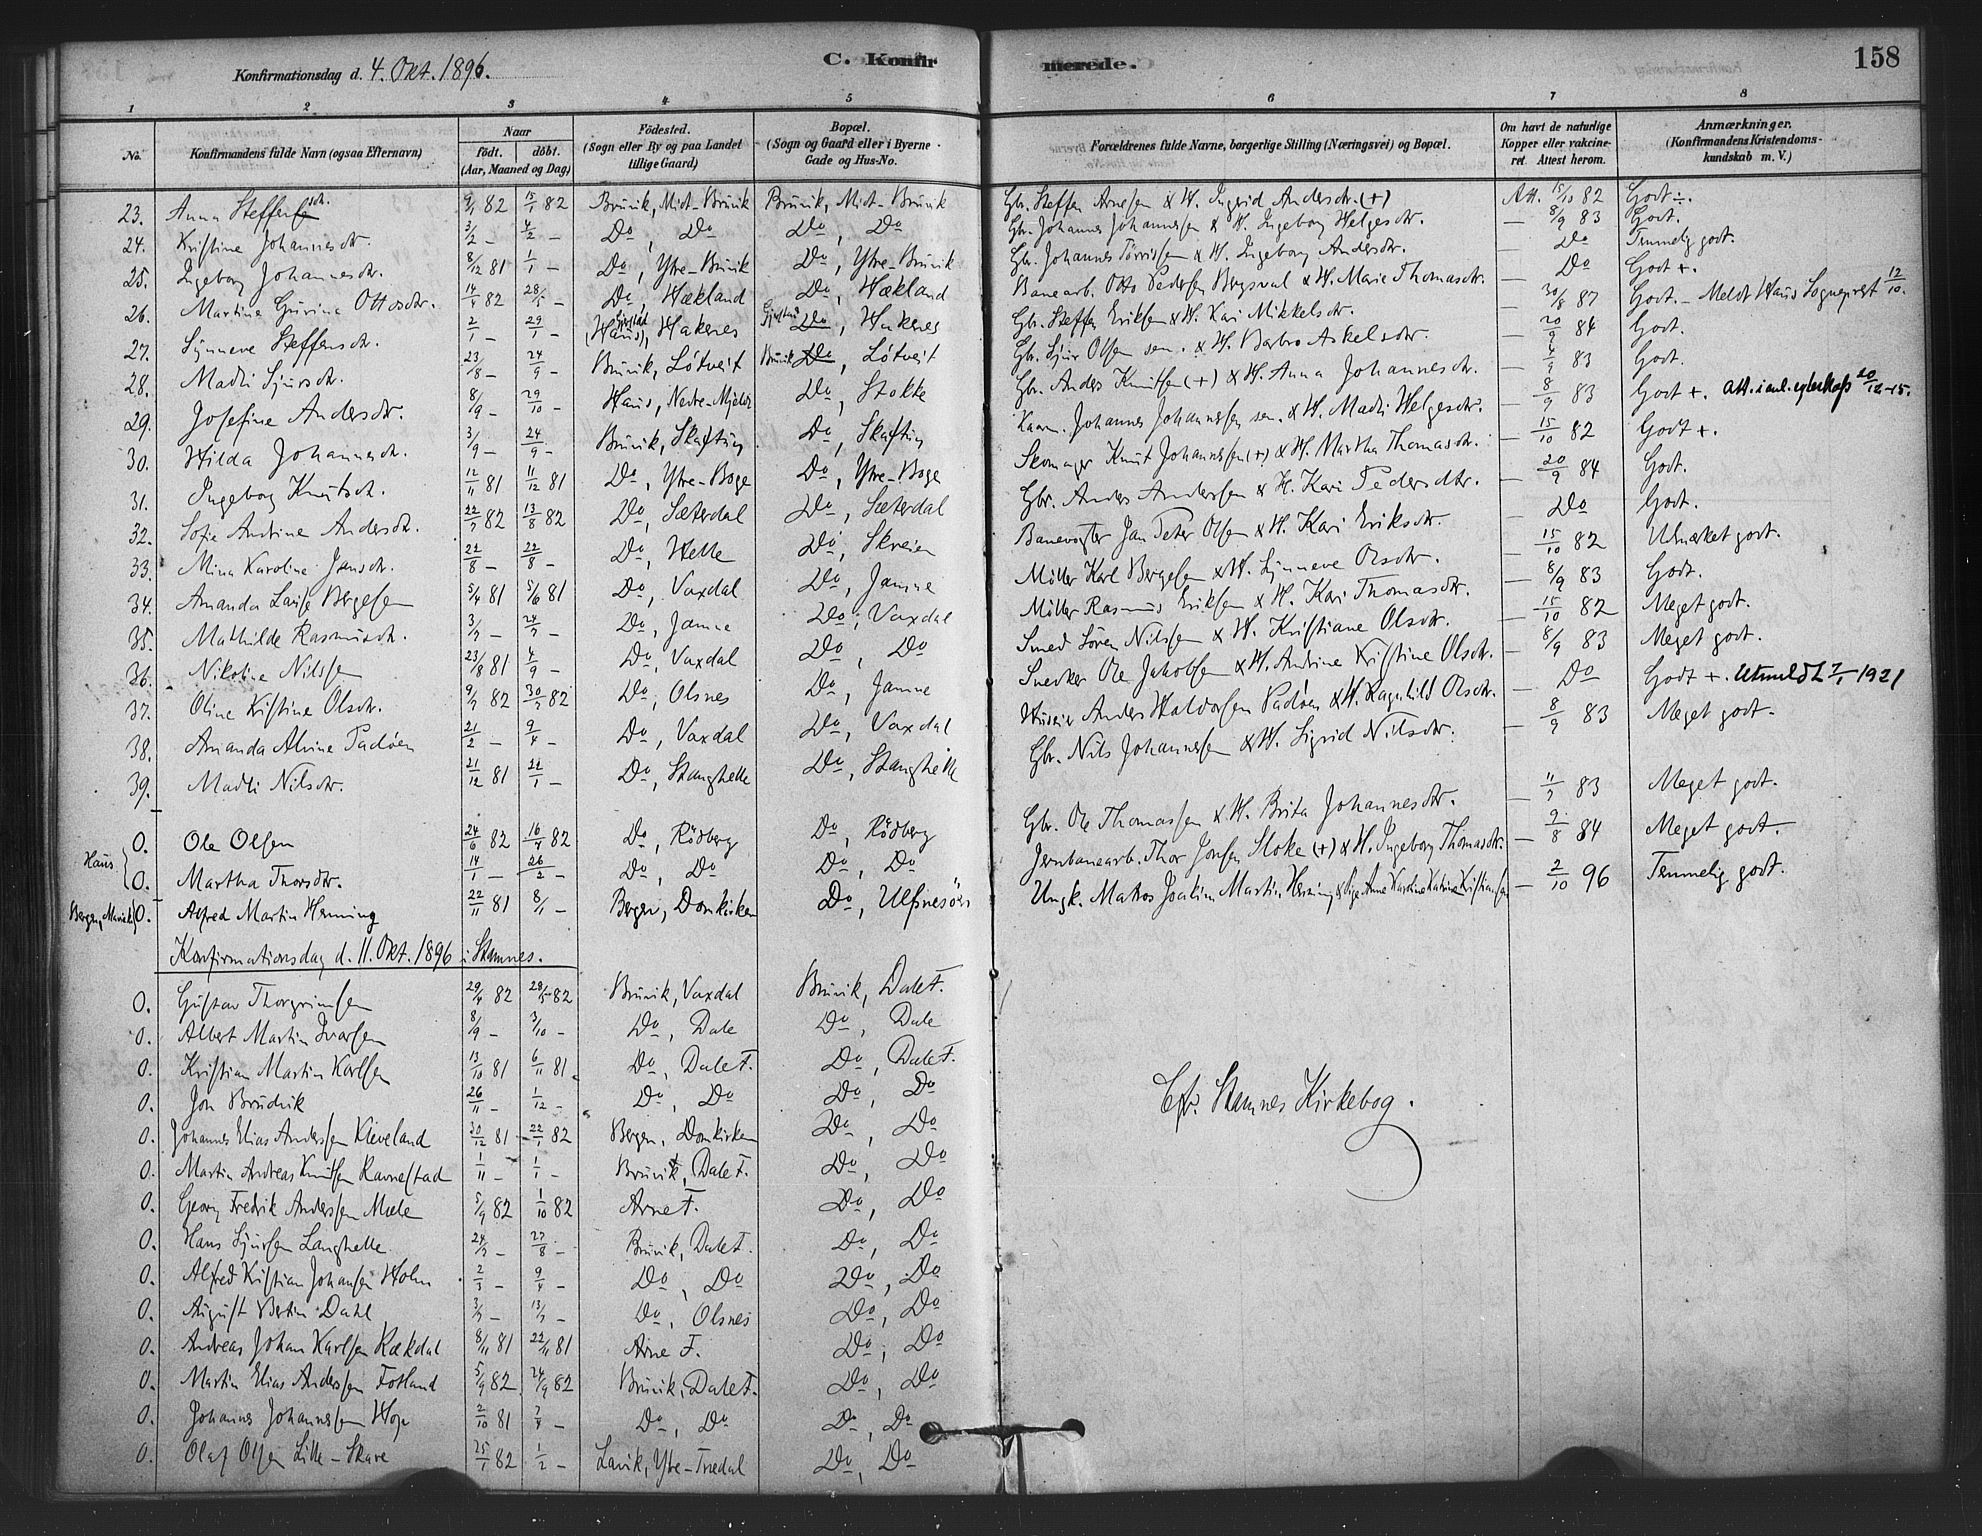 Konfirmationsdag d. 4. Okt. 1896. C. Konfirmerede. 158
1 2 3 4 5 6 7 8
No. Konfirmandens fulde Navn (ogsaa Efternavn) Naar födt. döbt. (Aar, Maaned og Dag) Födested. (Sogn eller By og paa Landet tillige Gaard) Bopæl. (Sogn og Gaard eller i Byerne Gade og Hus-No. Forældrenes fulde Navne, borgerlige Stilling (Næringsvei) og Bopæl. Om havt de naturlige Kopper eller vakcineret. Attest herom. Anmærkninger. (Konfirmandens Kristendomskundskab m. V.)
23. Anna Steffensdtr. 9/1 82 15/1 82 Bruvik, Midt-Bruvik Bruvik, Midt-Bruvik Gbr. Steffen Arnesen & H. Ingrid Andersdtr. (+) Att. 15/10 82 Godt ÷.
24. Kristine Johannesdtr. 3/2 – 4/2 – Do, Do Do, Do Gbr. Johannes Johannessen & H. Ingeborg Helgesdtr. – 8/9 83 Godt.
25. Ingeborg Johannesdtr. 8/12 81 1/1 – Do, Ytre-Bruvik Do, Ytre-Bruvik Gbr. Johannes Törrissen & H. Ingeborg Andersdtr. – Do Temmelig godt.
26. Martine Gurina Ottosdtr. 14/5 82 28/5 – Do, Hækland Do, Hækland Banearb. Otto Pedersen Bergsval & H. Marie Thomasdtr. – Do Godt +.
27. Synneve Steffensdtr. 2/1 – 29/1 – (Haus), Hakenes Do, Hakenes Gbr. Steffen Eriksen & H. Kari Mikkelsdtr. – 30/8 87 Godt. – Meldt Haus Sogneprest 12/10.
28. Madli Sjursdtr. 23/8 – 24/9 – Bruvik, Lötveit Bruvik Do, Lötveit Gbr. Sjur Olsen sen. & H. Barbro Askelsdtr. – 20/9 84 Godt.
29. Josefine Andersdtr. 8/9 – 29/10 – Haus, Nedre-Mjelde Do, Stokke Gbr. Anders Knutsen (+) & H. Anna Johannesdtr. – 4/9 83 Godt.
30. Hilda Johannesdtr. 3/9 – 24/9 – Bruvik, Skaftun Do, Skaftun Kaarm. Johannes Johannessen sen. & H. Madli Helgesdtr. – 8/9 83 Godt +. Att. i anl. ekteskap 20/12-15.
31. Ingeborg Knutsdtr. 12/11 81 11/12 81 Do, Ytre-Boge Do, Ytre-Boge Skomager Knut Johannessen (+) & H. Martha Thomasdtr. – 15/10 82 Godt +.
32. Sofie Andrine Andersdtr. 22/7 82 13/8 82 Do, Sæterdal Do, Sæterdal Gbr. Anders Andersen & H. Kari Pedersdtr. – 20/9 84 Godt.
33. Mina Karoline Jansdtr. 22/8 – 22/8 – Do, Helle Do, Skreien Banevogter Jan Peter Olsen & H. Kari Eriksdtr. – Do Godt.
34. Amanda Lavise Bergesen 5/4 81 5/6 81 Do, Vaxdal Do, Jamne Möller Karl Bergesen & H. Synneve Olsdtr. – 15/10 82 Udmerket godt.
35. Mathilde Rasmusdtr. 3/7 – 24/7 – Do, Jamne Do, Vaxdal Möller Rasmus Eriksen & H. Kari Thomasdtr. – 8/9 83 Godt.
36. Nikoline Nilssen 23/8 81 4/9 – Do, Vaxdal Do, Do Smed Sören Nilssen & H. Kristiane Olsdtr. – 15/10 82 Meget godt.
37. Oline Kristine Olsdtr. 9/7 82 30/7 82 Do, Olsnes Do, Jamne Snedker Ole Jakobsen & H. Andrine Kristine Olsdtr. – 8/9 83 Meget godt.
38. Amanda Alvine Padöen 21/2 – 9/4 – Do, Vaxdal Do, Vaxdal Huseier Anders Haldorsen Padöen & H. Ragnhild Olsdtr. – Do Godt +. Utmeldt 7/1 1921
39. Madli Nilsdtr. 21/12 81 22/1 – Do, Stanghelle Do, Stanghelle Gbr. Nils Johannessen & H. Sigrid Nilsdtr. – 8/9 83 Meget godt.
Haus { 0. Ole Olsen 24/6 82 16/4 82 Do, Rödberg Do, Rödberg Gbr. Ole Thomassen & H. Brita Johannesdtr. – 11/7 83 Meget godt.
0. Martha Thorsdtr. 14/1 – 26/2 – Do, Do Do, Do Jernbanearb. Thor Jonsen Stoke (+) & H. Ingeborg Thomasdtr. – 9/8 84 Meget godt.
0. Alfred Martin Henning 22/11 81 8/11 – Bergen, Domkirken Do, Ulfsnesöen Ungk. Matros Joakim Martin Henning & Pige Anne Karoline Katrine Kristiansen – 2/10 96 Temmelig godt.
Konfirmationsdag d. 11. Okt. 1896 i Stamnes.
0. Gustav Thorgrimsen 29/4 82 28/5 82 Bruvik, Vaxdal Bruvik, Dale F.
0. Albert Martin Ivarsen 8/9 – 3/10 – Do, Dale Do, Dale
0. Kristian Martin Karlsen 13/10 81 6/11 81. Do, Dale F. Do, Dale F.
0. Jon Brudvik 26/11 – 1/12 – Do, Do Do, Do Cfr. Stamnes Kirkebog.
0. Johannes Elias Andersen Kleveland 30/12 81 22/1 82 Bergen, Domkirken Do, Do
0. Martin Andreas Knutsen Ravnestad 1/11 – 1/1 – Bruvik, Dale F. Do, Do
0. Georg Fredrik Anderssen Mæle 5/9 82 1/10 82 Arne F. Do, Do
0. Hans Sjursen Langhelle 24/7 – 27/8 – Bruvik, Dale F. Do, Do
0. Alfred Kristian Johansen Holm 2/3 – 9/4 – Do, Do Do, Do
0. August Bertin Dahl 3/7 – 13/7 – Do, Olsnes Do, Do
0. Andreas Johan Karlsen Rækdal 8/11 81 22/11 81 Arne F. Do, Do
0. Martin Elias Anderssen Fotland 5/9 82 24/9 82 Bruvik, Dale F. Do, Do
0. Johannes Johannessen Hope 2/10 81 7/4 – Do, Do Do, Do
0. Olaf Olsen Lille-Skare 25/1 82 1/2 – Lavik, Ytre-Trædal Do, Do